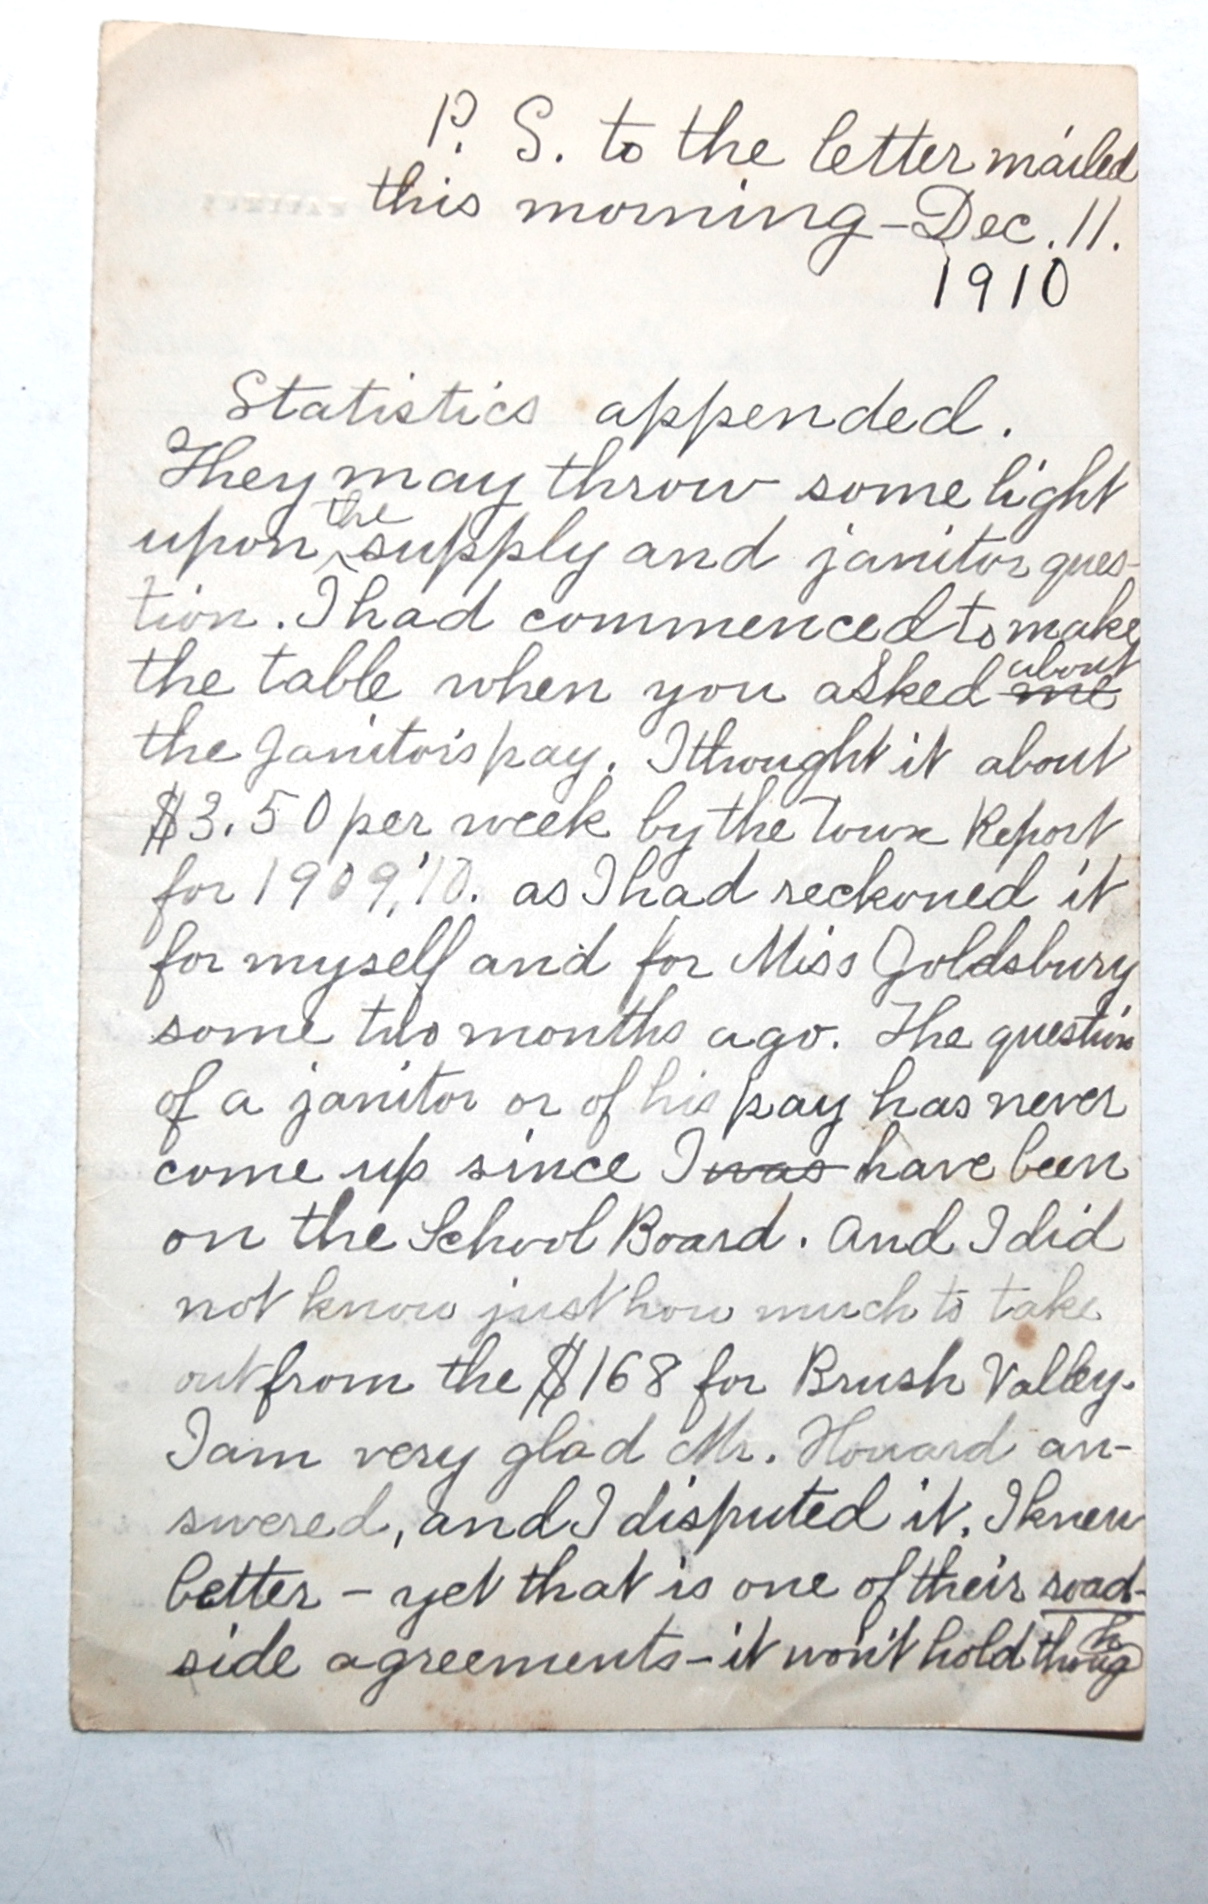 P. S. to the letter mailed
this morning – Dec. 11.
1910
Statistics appended.
They may throw some light
upon the supply and janitor ques-
tion. I had commenced to make
the table when you asked me about
the Janitor's pay. I thought it about
$3.50 per week by the Town Report
for 1909,'10. as I had reckoned it
for myself and for Miss Goldsbury
some two months ago. The question
of a janitor or of his pay has never
come up since I was have been
on the School Board. And I did
not know just how much to take
out from the $168 for Brush Valley.
I am very glad Mr. Howard an-
swered, and I disputed it. I knew
better – yet that is one of their road-
side agreements – it won't hold though